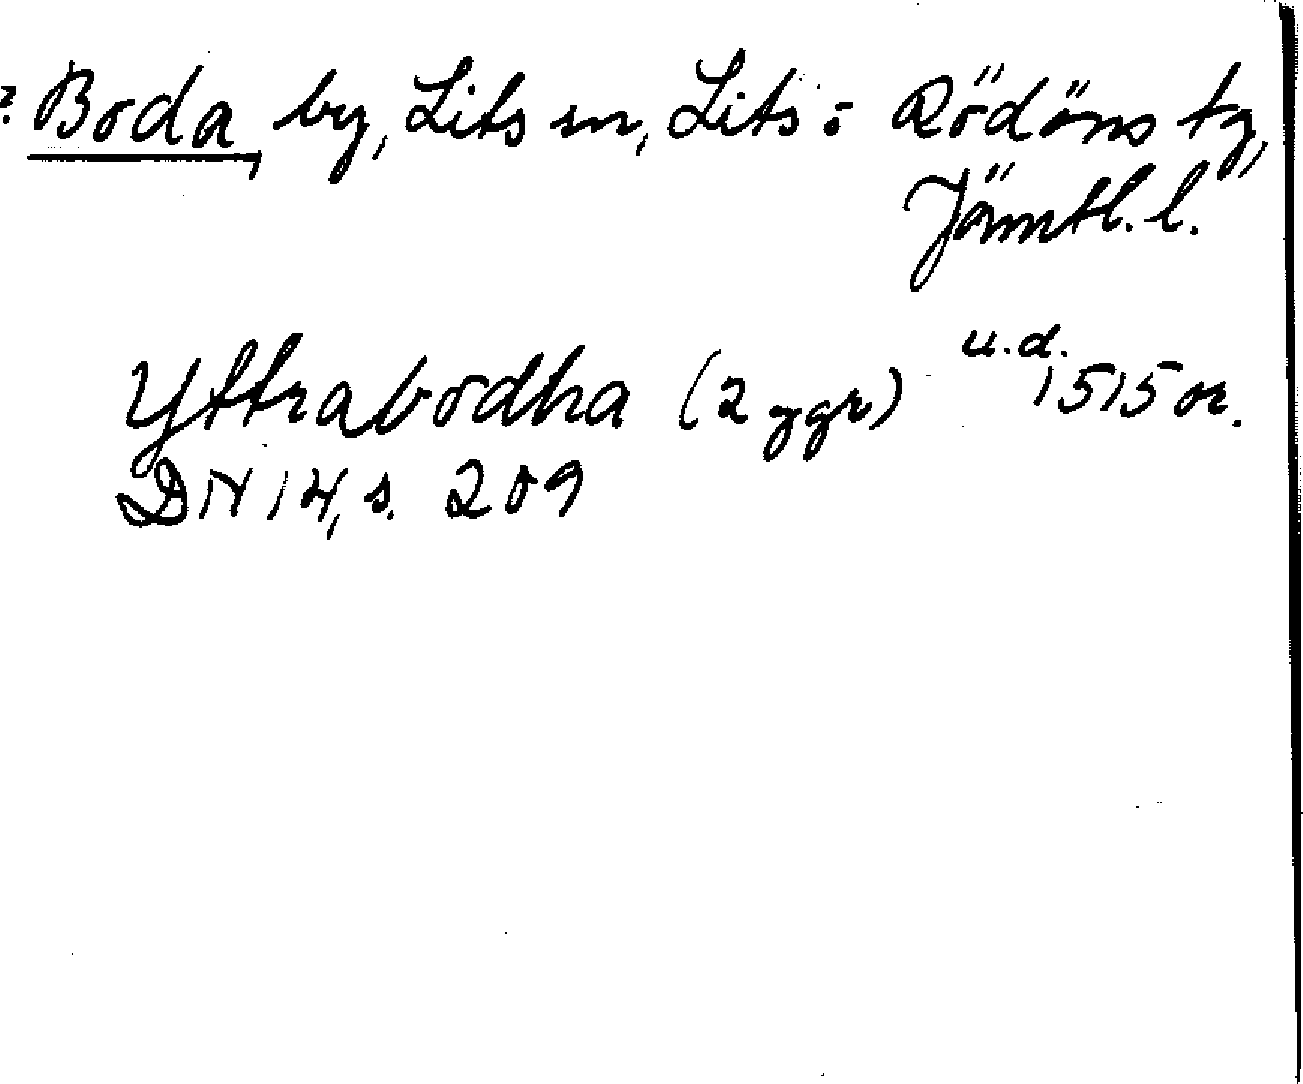 ? Boda, by, Lits sn, Lits o Rödöns tg,
Jämtl. l.
Yttrabodha (2 ggr) u.d. 1515 or.
DN 14, s. 209